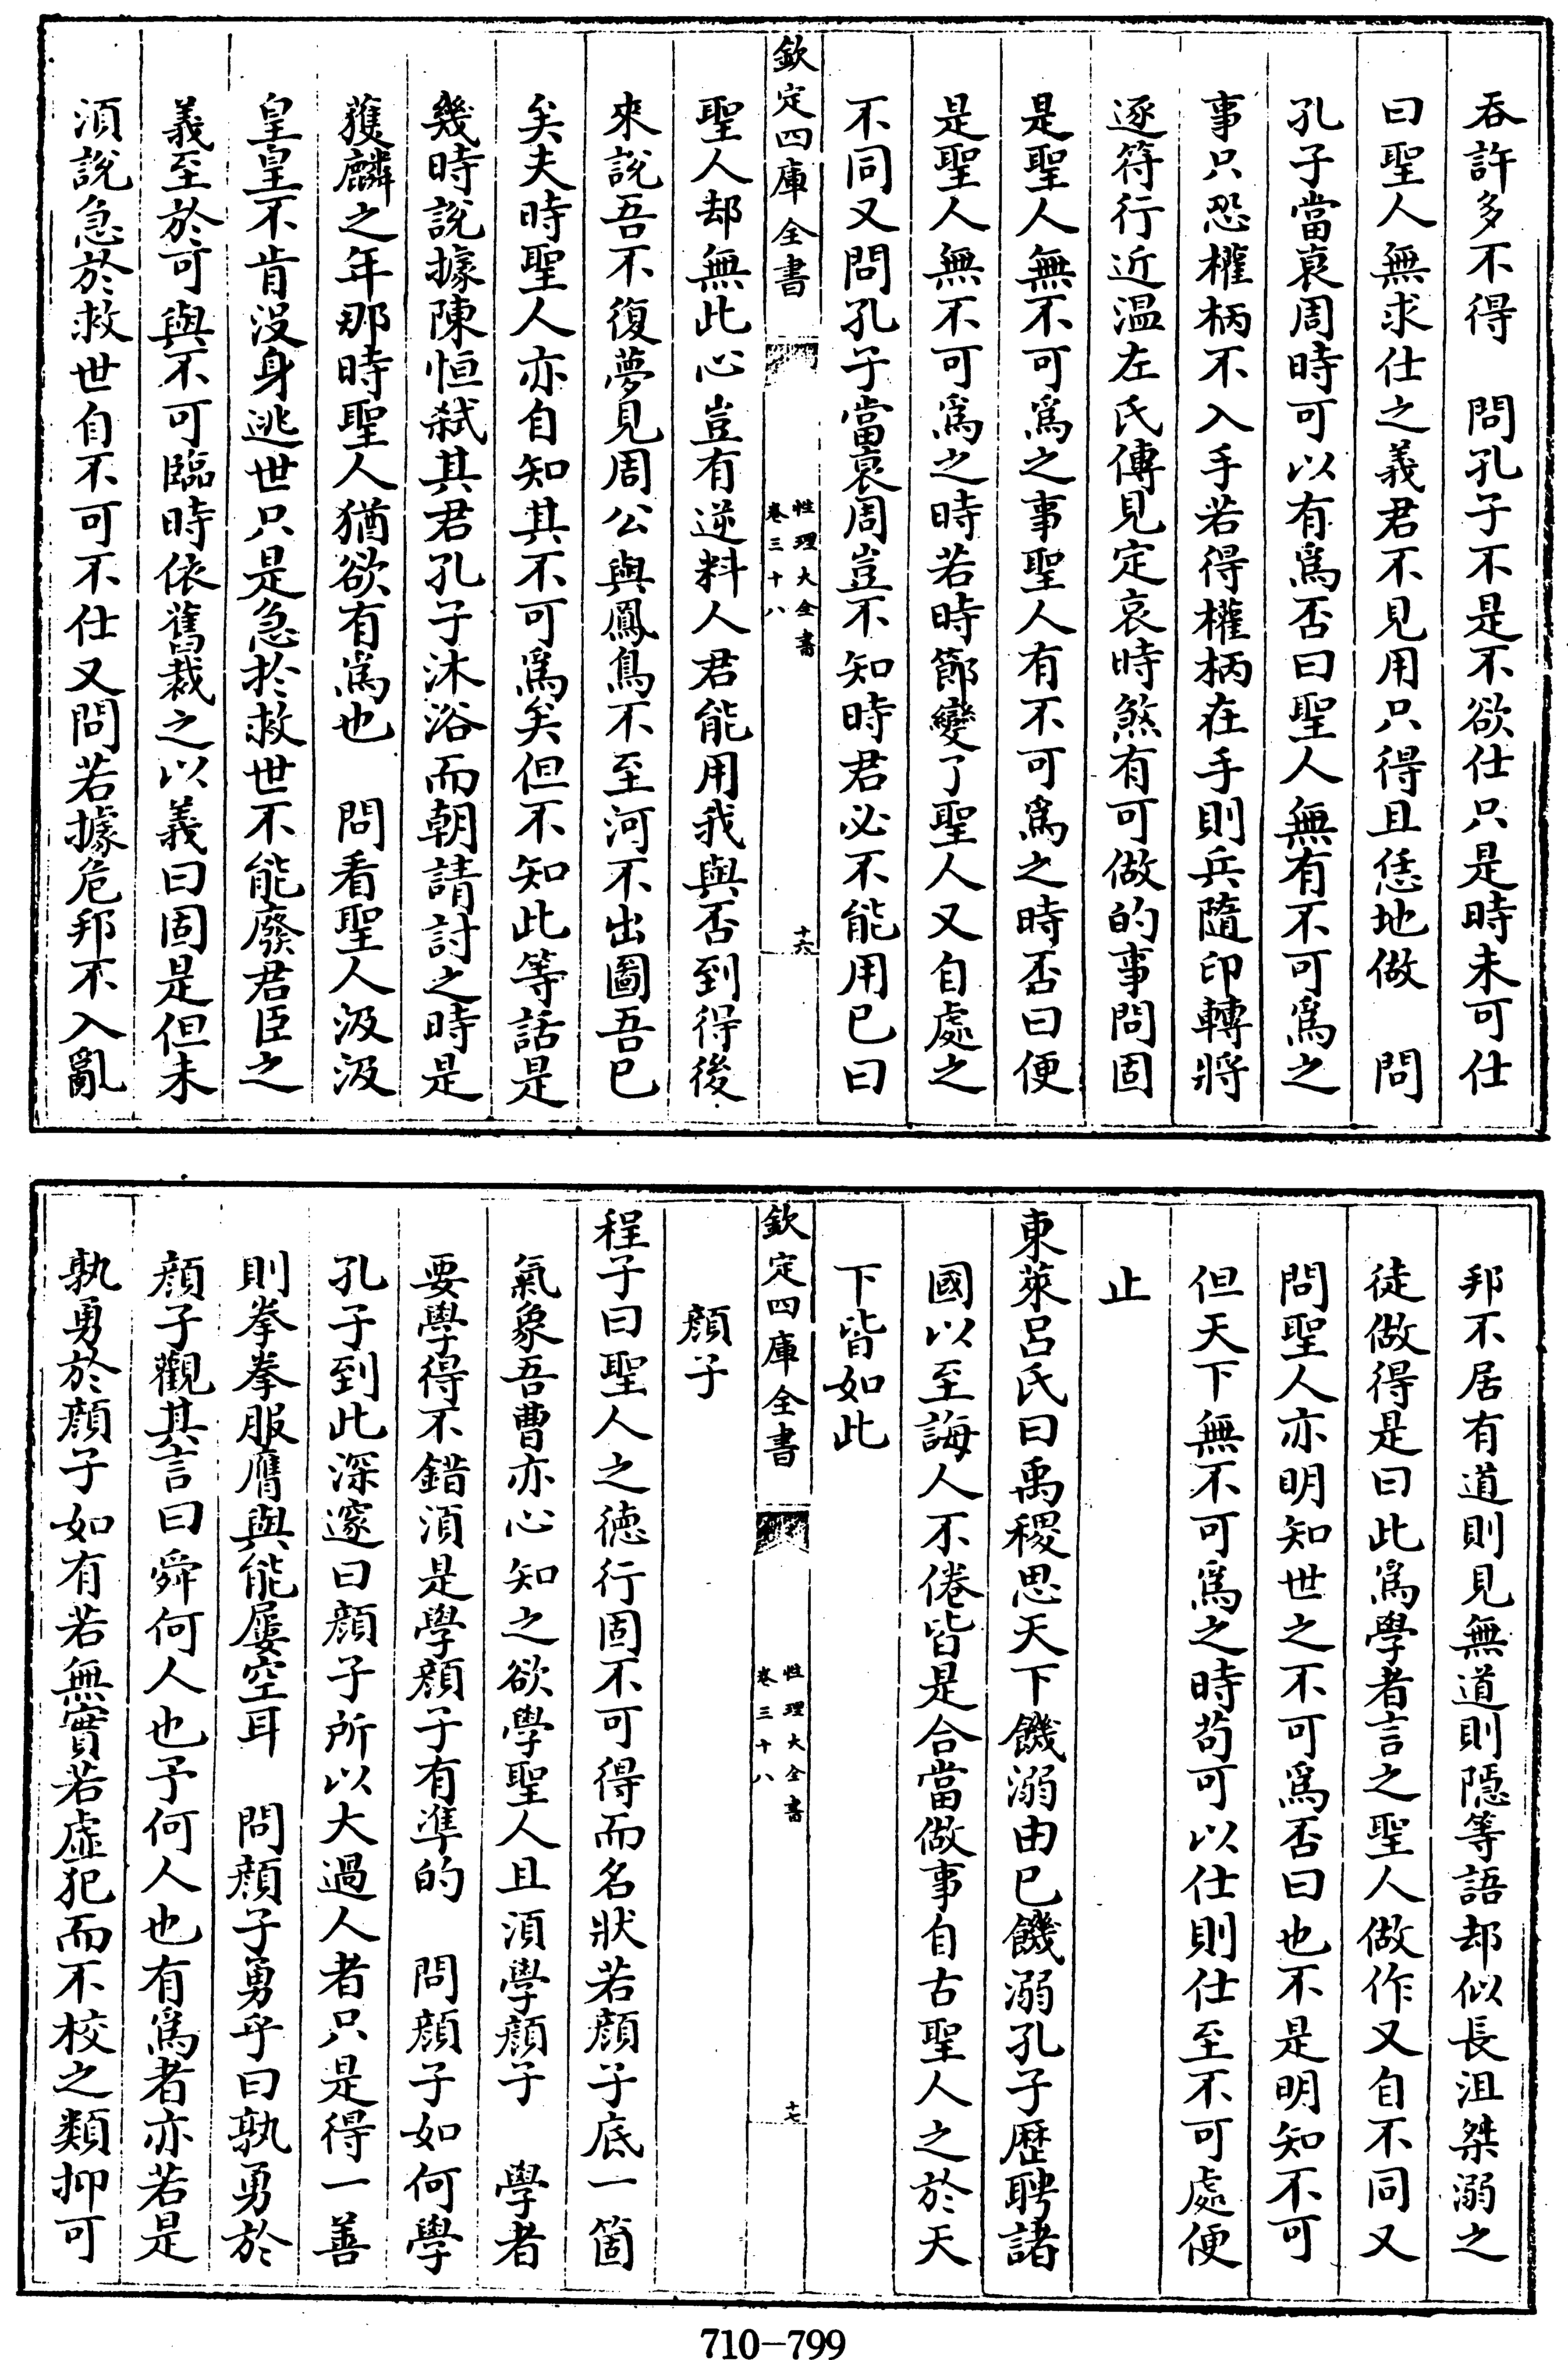 吞許多不得　問孔子不是不欲仕只是時未可仕
曰聖人無求仕之義君不見用只得且恁地做　問
孔子當衰周時可以有為否曰聖人無有不可為之
事只恐權柄不入手若得權柄在手則兵隨印轉將
逐符行近溫左氏傳見定哀時煞有可做的事問固
是聖人無不可為之事聖人有不可為之時否曰便
是聖人無不可為之時若時節變了聖人又自處之
不同又問孔子當衰周豈不知時君必不能用已曰
欽定四庫全書
性理大全書
卷三十八
十六
聖人却無此心豈有逆料人君能用我與否到得後
來說吾不復夢見周公與鳳鳥不至河不出圖吾已
矣夫時聖人亦自知其不可為矣但不知此等話是
幾時說據陳恒弑其君孔子沐浴而朝請討之時是
獲麟之年那時聖人猶欲有為也　問看聖人汲汲
皇皇不肯沒身逃世只是急於救世不能廢君臣之
義至於可與不可臨時依舊裁之以義曰固是但未
須說急於救世自不可不仕又問若據危邦不入亂
邦不居有道則見無道則隱等語却似長沮桀溺之
徒做得是曰此為學者言之聖人做作又自不同又
問聖人亦明知世之不可為否曰也不是明知不可
但天下無不可為之時茍可以仕則仕至不可處便
止
東萊呂氏曰禹稷思天下饑溺由已饑溺孔子歷聘諸
國以至誨人不倦皆是合當做事自古聖人之於天
下皆如此
欽定四庫全書
性理大全書
卷三十八
十七
顏子
程子曰聖人之德行固不可得而名狀若顏子底一箇
氣象吾曹亦心知之欲學聖人且須學顏子　學者
要學得不錯須是學顏子有準的　問顏子如何學
孔子到此深邃曰顏子所以大過人者只是得一善
則拳拳服膺與能屢空耳　問顏子勇乎曰孰勇於
顏子觀其言曰舜何人也予何人也有為者亦若是
孰勇於顏子如有若無實若虛犯而不校之類抑可
710-799